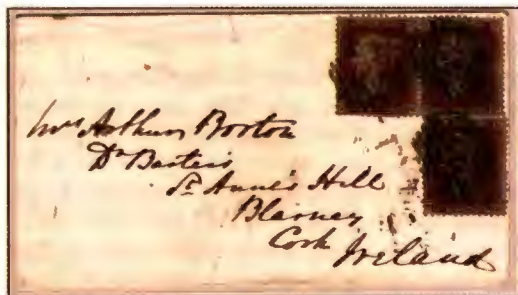 Mrs Arthur Borton
Dr Barter's
St Anne's Hill
Blarney
Cork Ireland